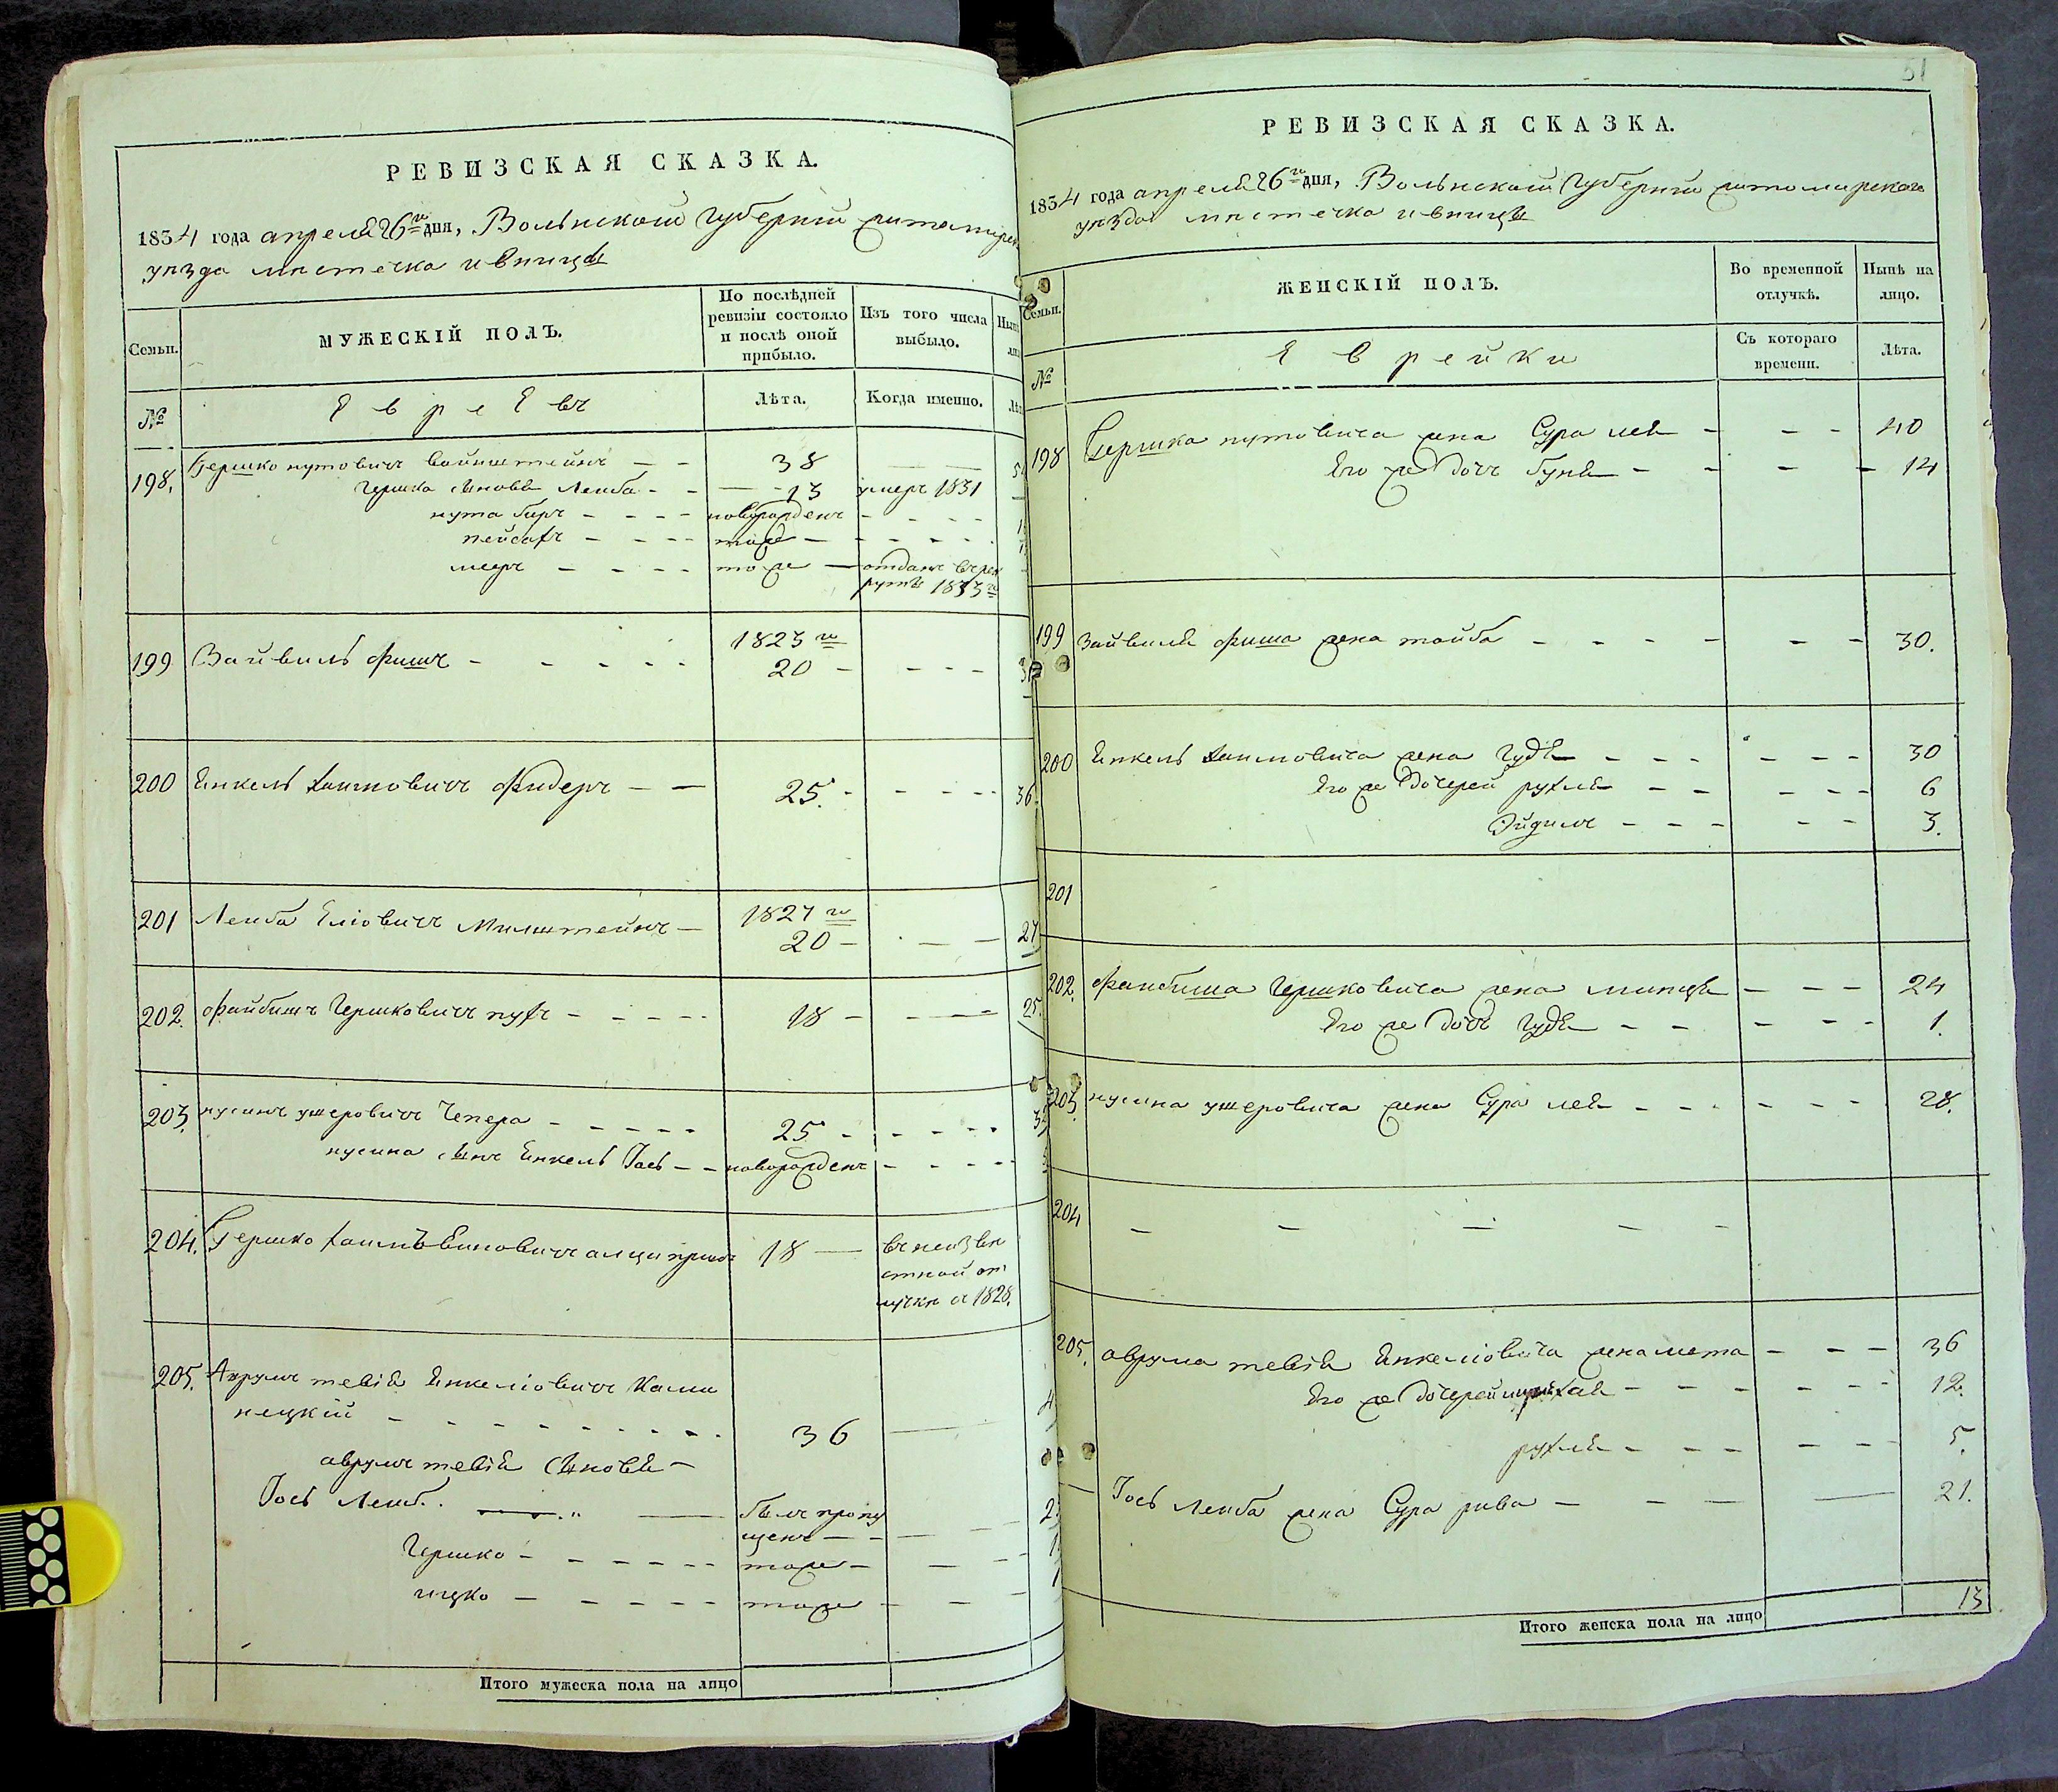 РЕВИЗСКАЯ СКАЗКА.
1834 года апреля 26го дня, Волынской Губернии житомирск
уѣзда мѣстечка ивницы
Семьи.
МУЖЕСКІЙ ПОЛЪ.
По послѣдней ревизіи состояло и послѣ оной прибыло.
Изъ того числа выбыло.
№
Евреевъ
Лѣта.
Когда именно.
198. Гершко нутовичъ вайнштейнъ — — 38
Гершка сыновья Лейба - - 13 умеръ 1831
нута беръ - - - - новорожденъ - - - -
пейсахъ - - - - тоже - - - - -
мееръ - - - - тоже — отданъ въ рек
руты 1833го
199 Зайвиль Фишъ - - - - - 1823го
20 - - - -
200 Янкель Хаимовичъ Фидеръ — — 25. - - - - 36.
201 Лейба Еліовичъ Милштейнъ — 1827го
20 - - — — 27
202. Файбишъ Гершковичъ пухъ - - - - - 18 - - — — 25.
203. нусинъ ушеровичъ Чепера - - - - - 25 - - - - -
нусина сынъ Янкель Іось - - новорожденъ - - - -
204. Гершко Хаимъ 18 — въ неизвѣ
стной от
лучкѣ съ 1828.
205. Аврумъ тевія Янкеліовичъ Каме
нецкій - - - - - - - - 36
аврумъ тевія сыновья -
Іось Лейб. былъ пропу
щенъ — -
Гершко - - - - - - тоже -
ицко - - - - - - тоже - -
Итого мужеска пола на лицо
51
РЕВИЗСКАЯ СКАЗКА.
1834 года апреля 26го дня, Волынской Губерніи житомирскаго
уѣзда мѣстечка ивницы
Семьи.
ЖЕНСКІЙ ПОЛЪ.
Во временной отлучкѣ.
Нынѣ на лицо.
№
Еврейки
Съ котораго времени.
Лѣта.
198 Гершка нутовича жена Сура лея - - - 40
Его же дочь буня - - - - 14
199 Зайвиля Фиша жена тайба - - - - - - 30.
200 Янкель Хаимовича жена Гудя - - - - - - 30
Его же дочерей рухля - - - - - 6
Эйдимъ - - - - - 3.
201
202. Файбиша Гершковича жена минця - - - 24
Его же дочь Гудя - - - - - 1.
203. нусина ушеровича жена Сура лея - - - - - - 28.
204 — — — — —
205. аврума тевія Янкеліовича жена мета - - - 36
Его же дочерей - - - - - 12.
рухля - - - - - 5.
Іось Лейба жена Сура рива — - — — 21.
Итого женска пола на лицо 13